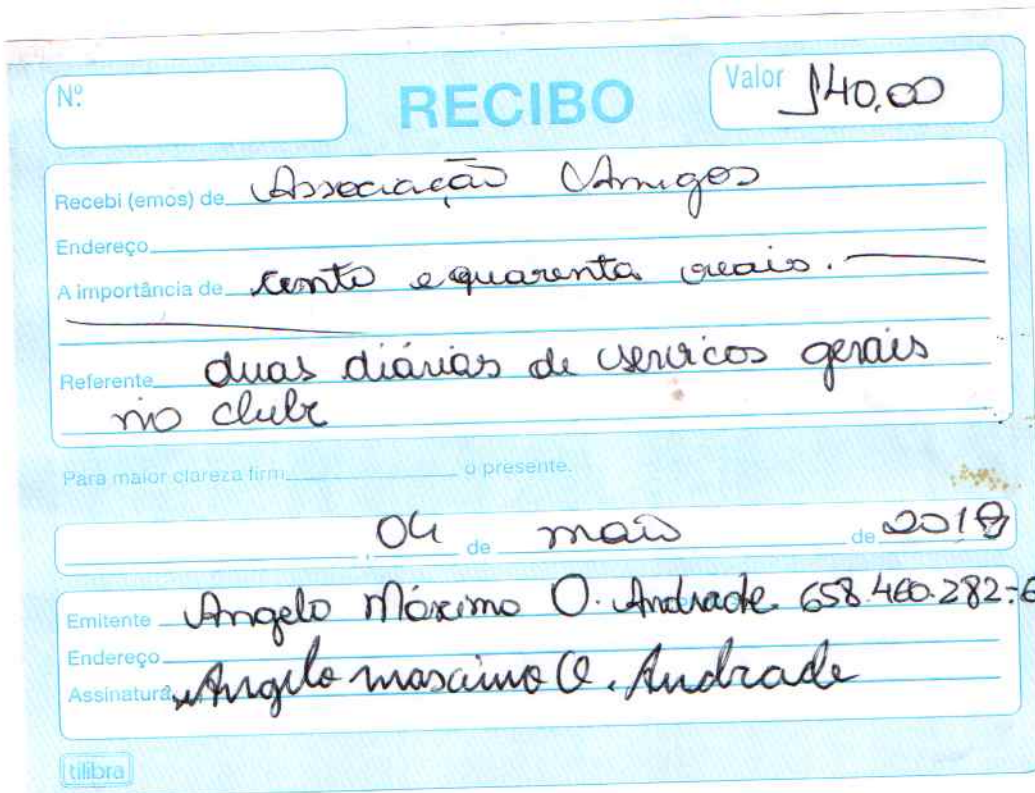 Nº
RECIBO
Valor 140,00
Recebi (emos) de Associação Amigos
Endereço
A importância de cento e quarenta reais.
Referente duas diárias de servicos gerais
no clube
Para maior clareza firm o presente.
, 04 de maio de 2019
Emitente Angelo Máximo O. Andrade 658.460.282-6
Endereço
Assinatura Angelo mascimo O. Andrade
tilibra